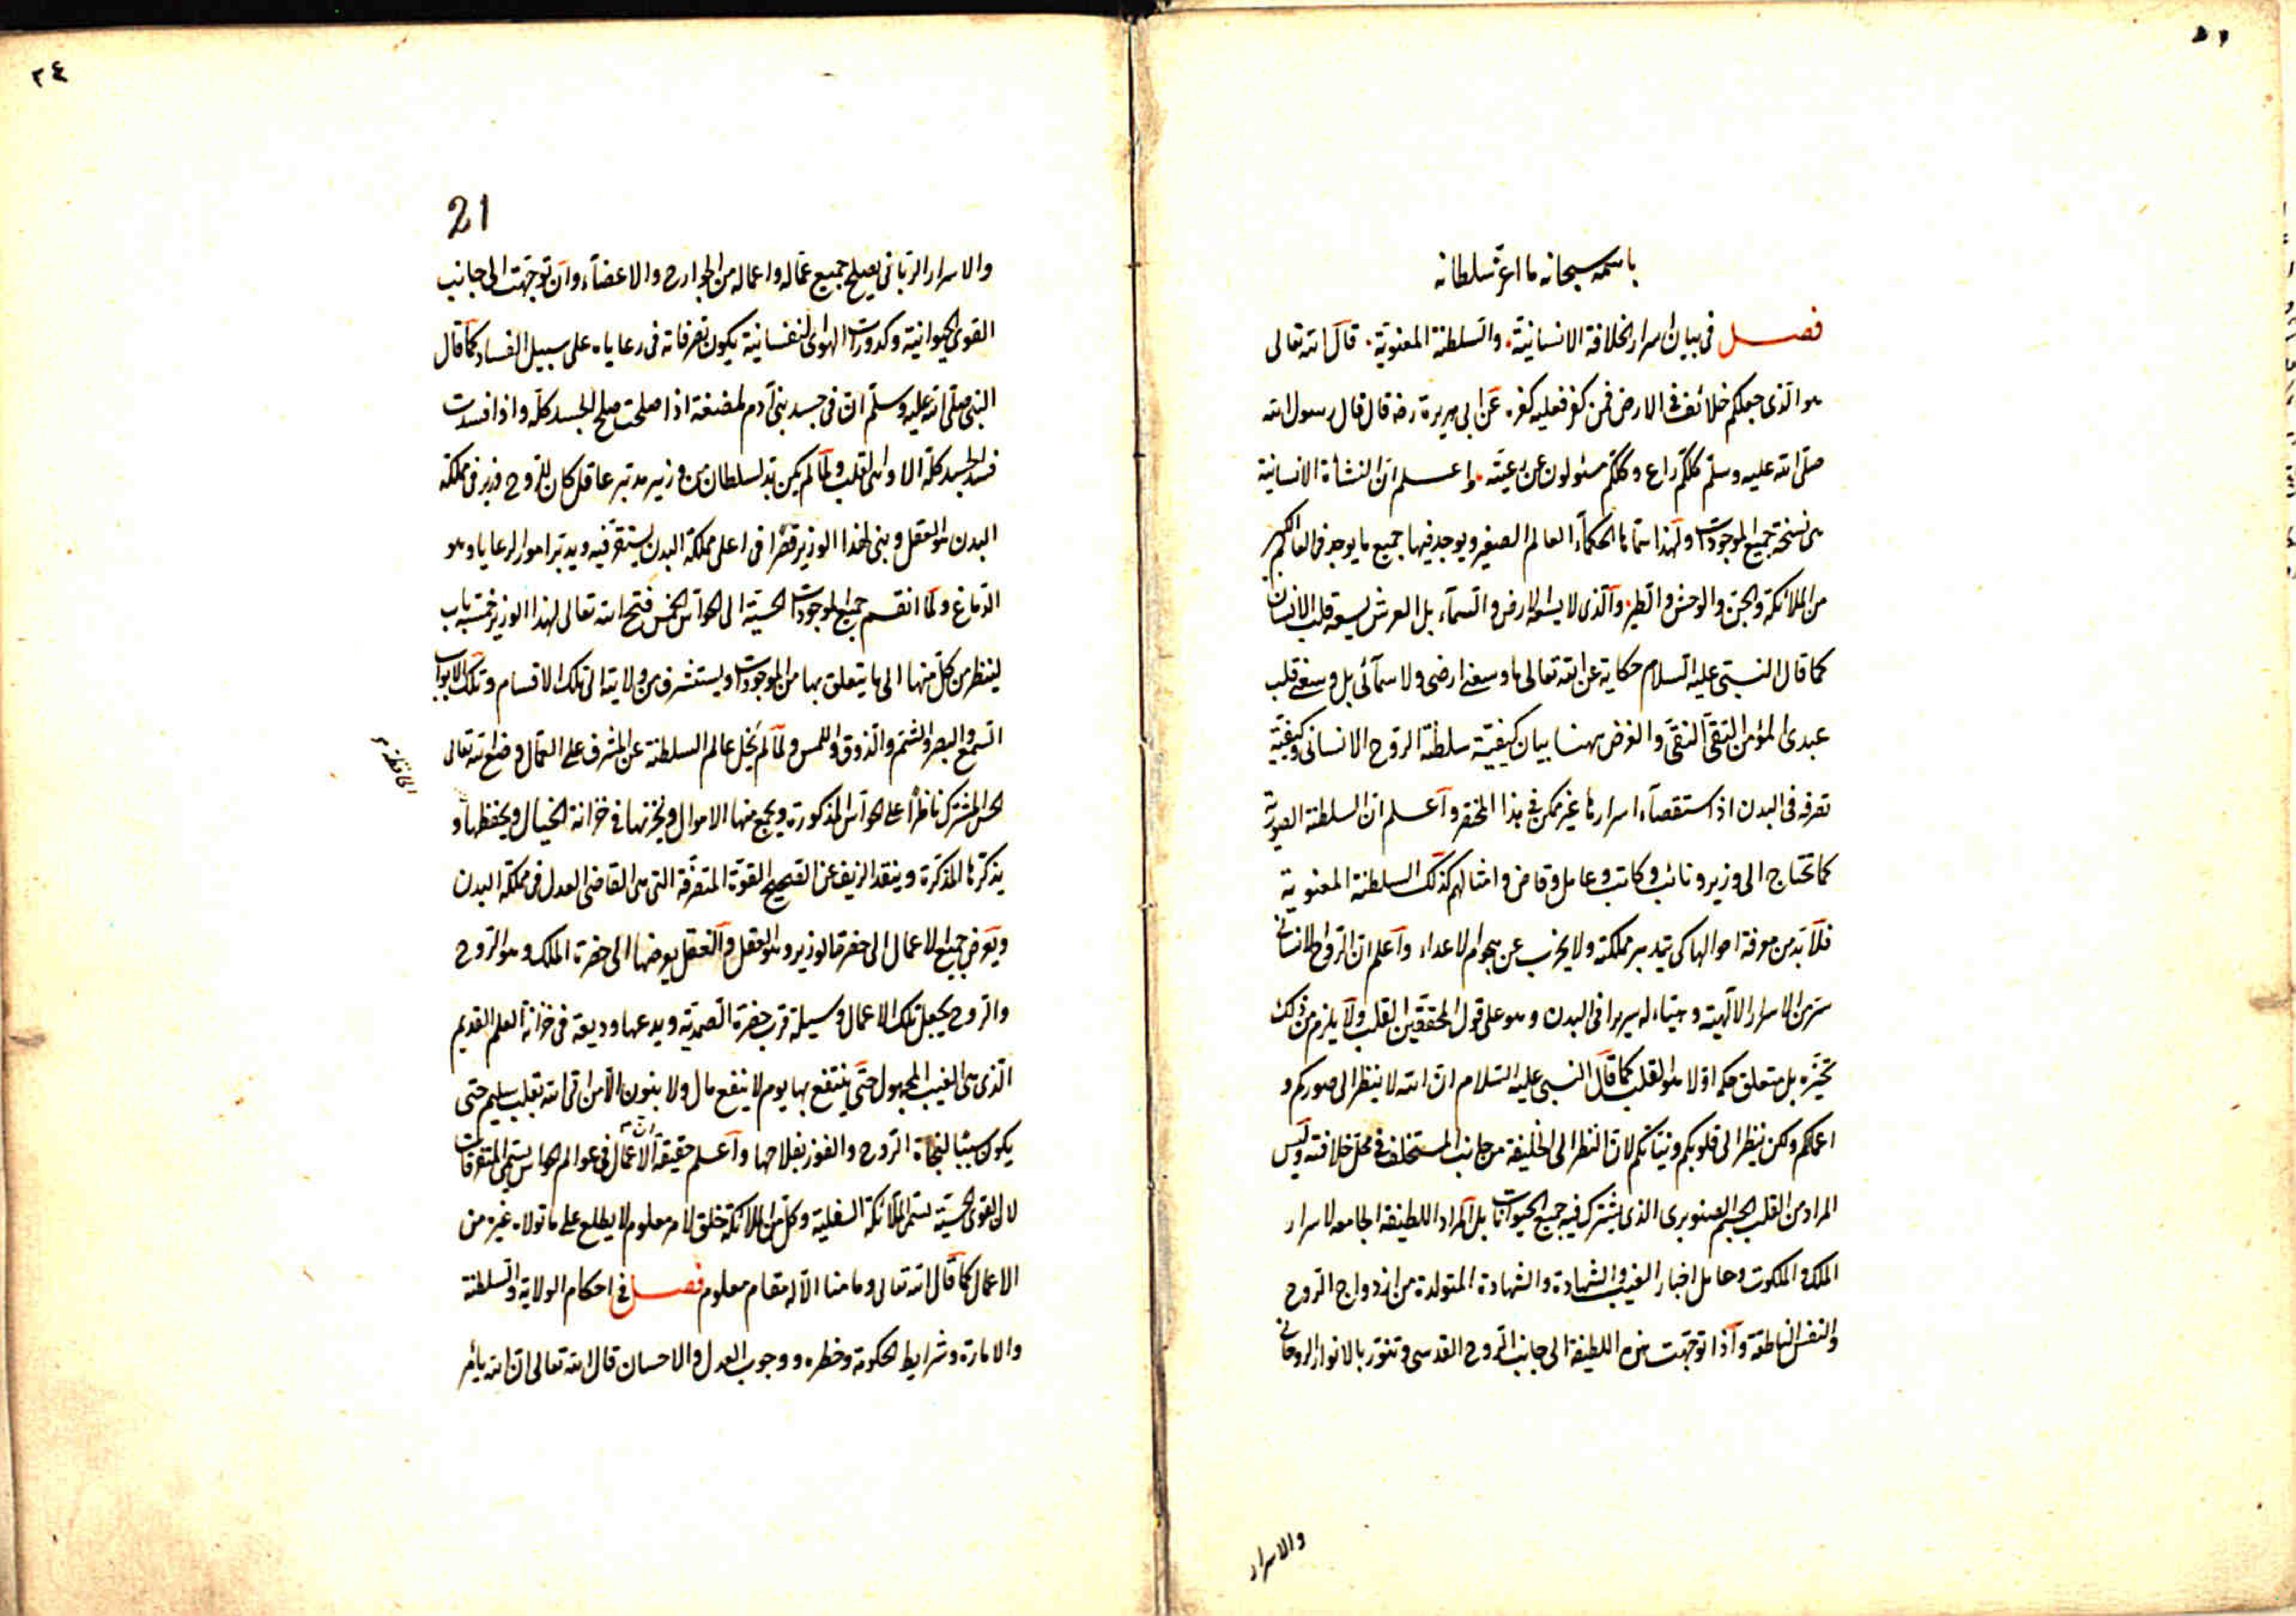 باسمه سبحانه ما اعز سلطانه
فصل في بيان اسرار الخلافة الانسانية والسلطنة المعنوية قال الله تعالى
هو الذى جعلكم خلائف فى الارض فمن كفر فعليه كفره عن ابى هريرة رضه قال قال رسول الله
صلى الله عليه وسلم كلكم راع وكلكم مسئولون عن رعيته واعلم ان النشأة الانسانية
هى نسخة جميع الموجودات ولهذا سماها الحكماء العالم الصغير ويوجد فيها جميع ما يوجد فى العالم الكبير
من الملائكة والجن والوحش والطير والذى لا يسعه الارض والسماء بل العرش يسعه قلب الانسان
كما قال النبى عليه السلام حكاية عن الله تعالى ما وسعنى ارضى ولا سمائى بل وسعنى قلب
عبدى المؤمن التقى النقى والغرض ههنا بيان كيفية سلطنة الروح الانسانى وكيفية
تصرفه فى البدن اذ استقصاء اسرارها غير ممكن فى هذا المختصر واعلم ان السلطنة الصورية
كما تحتاج الى وزير ونائب وكاتب وعامل وقاض وامثالهم كذلك السلطنة المعنوية
فلا بد من معرفة احوالها كى يتدبر مملكته ولا يخرب عن هجوم الاعداء واعلم ان الروح الانسانى
سر من الاسرار الالهية وهيئاء له سريرا فى البدن وهو على قول المحققين القلب ولا يلزم من ذلك
تحيزه بل متعلق حكمه اولا هو القلب كما قال النبى عليه السلام ان الله لا ينظر الى صوركم و
اعمالكم ولكن ينظر الى قلوبكم ونياتكم لان النظر الى الخليفة من جانب المستخلف فى محل خلافته وليس
المراد من القلب الجسم الصنوبرى الذى يشترك فيه جميع الحيوانات بل المراد اللطيفة الجامعه لاسرار
الملك والملكوت وحامل اخبار الغيب والشهادة والشهادة المتولدة من ازدواج الروح
والنفس الناطقة واذا توجهت هذه اللطيفة الى جانب الروح القدسى وتنور بالانوار الروحانى
والاسرار
٣٤
21
والاسرار الربانى يصلح جميع عماله واعماله من الجوارح والاعضاء وان توجهت الى جانب
القوى الحيوانية وكدورات الهواى النفسانية يكون تصرفاته فى رعاياه على سبيل الفساد كما قال
النبى صلى الله عليه وسلم ان فى جسد بنى آدم لمضغة اذا صلحت صلح الجسد كله واذا فسدت
فسد الجسد كله الا وهى القلب ولما لم يكن بد لسلطان من وزير مدبر عاقل كان للروح وزير فى مملكة
البدن هو العقل وبنى لهذا الوزير قصرا فى اعلى مملكة البدن يستقر فيه ويدبر امور الرعايا وهو
الدماغ ولما انقسم جميع الموجودات الحسية الى الحواس الخمس فتح الله تعالى لهذا الوزير خمسة باب
لينظر من كل منها الى ما يتعلق بها من الموجودات ويستشرف من ولايته الى تلك الاقسام وتلك الابواب
السمع والبصر والشم والذوق واللمس ولما لم يخل عالم السلطنة عن المشرف على العمال وضع الله تعالى
الحس المشترك ناظرا على الحواس المذكورة ويجمع منها الاموال ويخزنها فى خزانة الخيال ويحفظها و
الحافظه
يذكرها المذكرة وينقد الزيف عن الصحيح القوة المتصرفة التى هى القاضى العدل فى مملكة البدن
ويعرض جميع الاعمال الى حضرة الوزير وهو العقل والعقل يعرضها الى حضرة الملك وهو الروح
والروح يجعل تلك الاعمال وسيلة قرب حضرة الصمدية ويدعها وديعة فى خزانة العلم القديم
الذى هى الغيب المجهول حتى ينتفع بها يوم لا ينفع مال ولا بنون الا من اتى الله بقلب سليم حتى
يكون سببا لنجاة الروح والفوز بفلاحها واعلم حقيقة ان الاعمال فى عوالم الحواس يسمى المتفرقات
لان القوى الحسية يسمى الملائكة السفلية وكل من الملائكة خلق لامر معلوم لا يطلع على ما تولاه غيره من
الاعمال كما قال الله تعالى وما منا الا له مقام معلوم فصل فى احكام الولاية والسلطنة
والامارة وشرايط الحكومة وخطره ووجوب العدل والاحسان قال الله تعالى ان الله يأمر